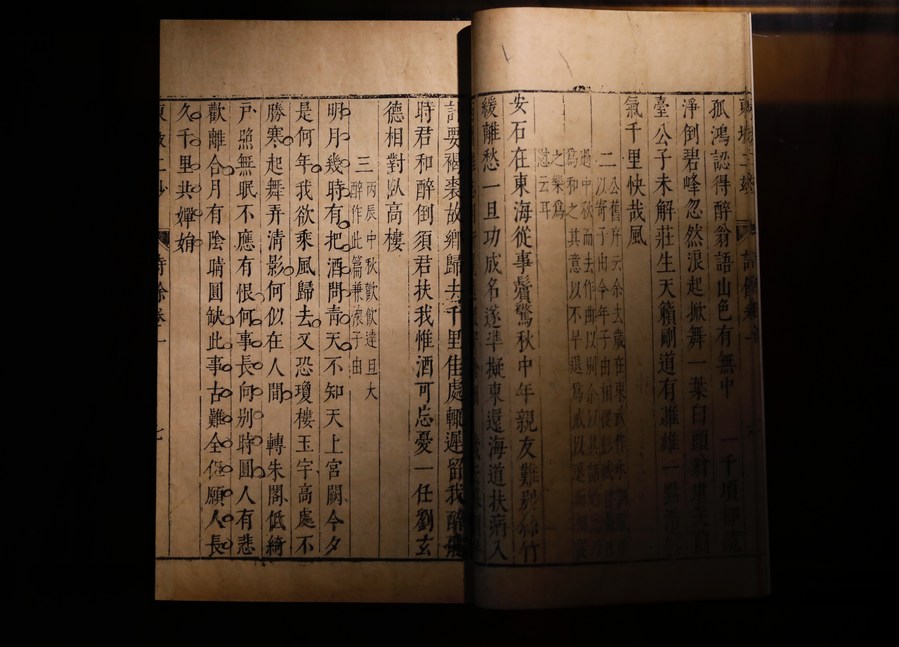 東坡二妙 詩餘卷一
孤鴻認得醉翁語山色有無中 一千頃都鏡
淨倒碧峰忽然浪起掀舞一葉白頭翁
臺公子未解莊生天籟剛道有雌雄一點浩
氣千里快哉風
二 公舊序云余去歲在東武作水調歌
以寄子由今年子由相從彭
過中秋而去作此曲以別余以其語
爲和之其意以不早退爲戒以退而相從
之樂爲
慰云耳
安石在東海從事鬢驚秋中年親友難別絲竹
緩離愁一旦功成名遂準擬東還海道扶病入
計要褐裘故鄉歸去千里佳處輒遲留我醉歌
時君和醉倒須君扶我惟酒可忘憂一任劉玄
德相對臥高樓
三 丙辰中秋歡飲達旦大
醉作此篇兼懷子由
明月幾時有把酒問青天不知天上宮闕今夕
是何年我欲乘風歸去又恐瓊樓玉宇高處不
勝寒起舞弄清影何似在人間 轉朱閣低綺
戶照無眠不應有恨何事長向別時圓人有悲
歡離合月有陰晴圓缺此事古難全但願人長
久千里共嬋娟
東坡二妙 詩餘卷一 七